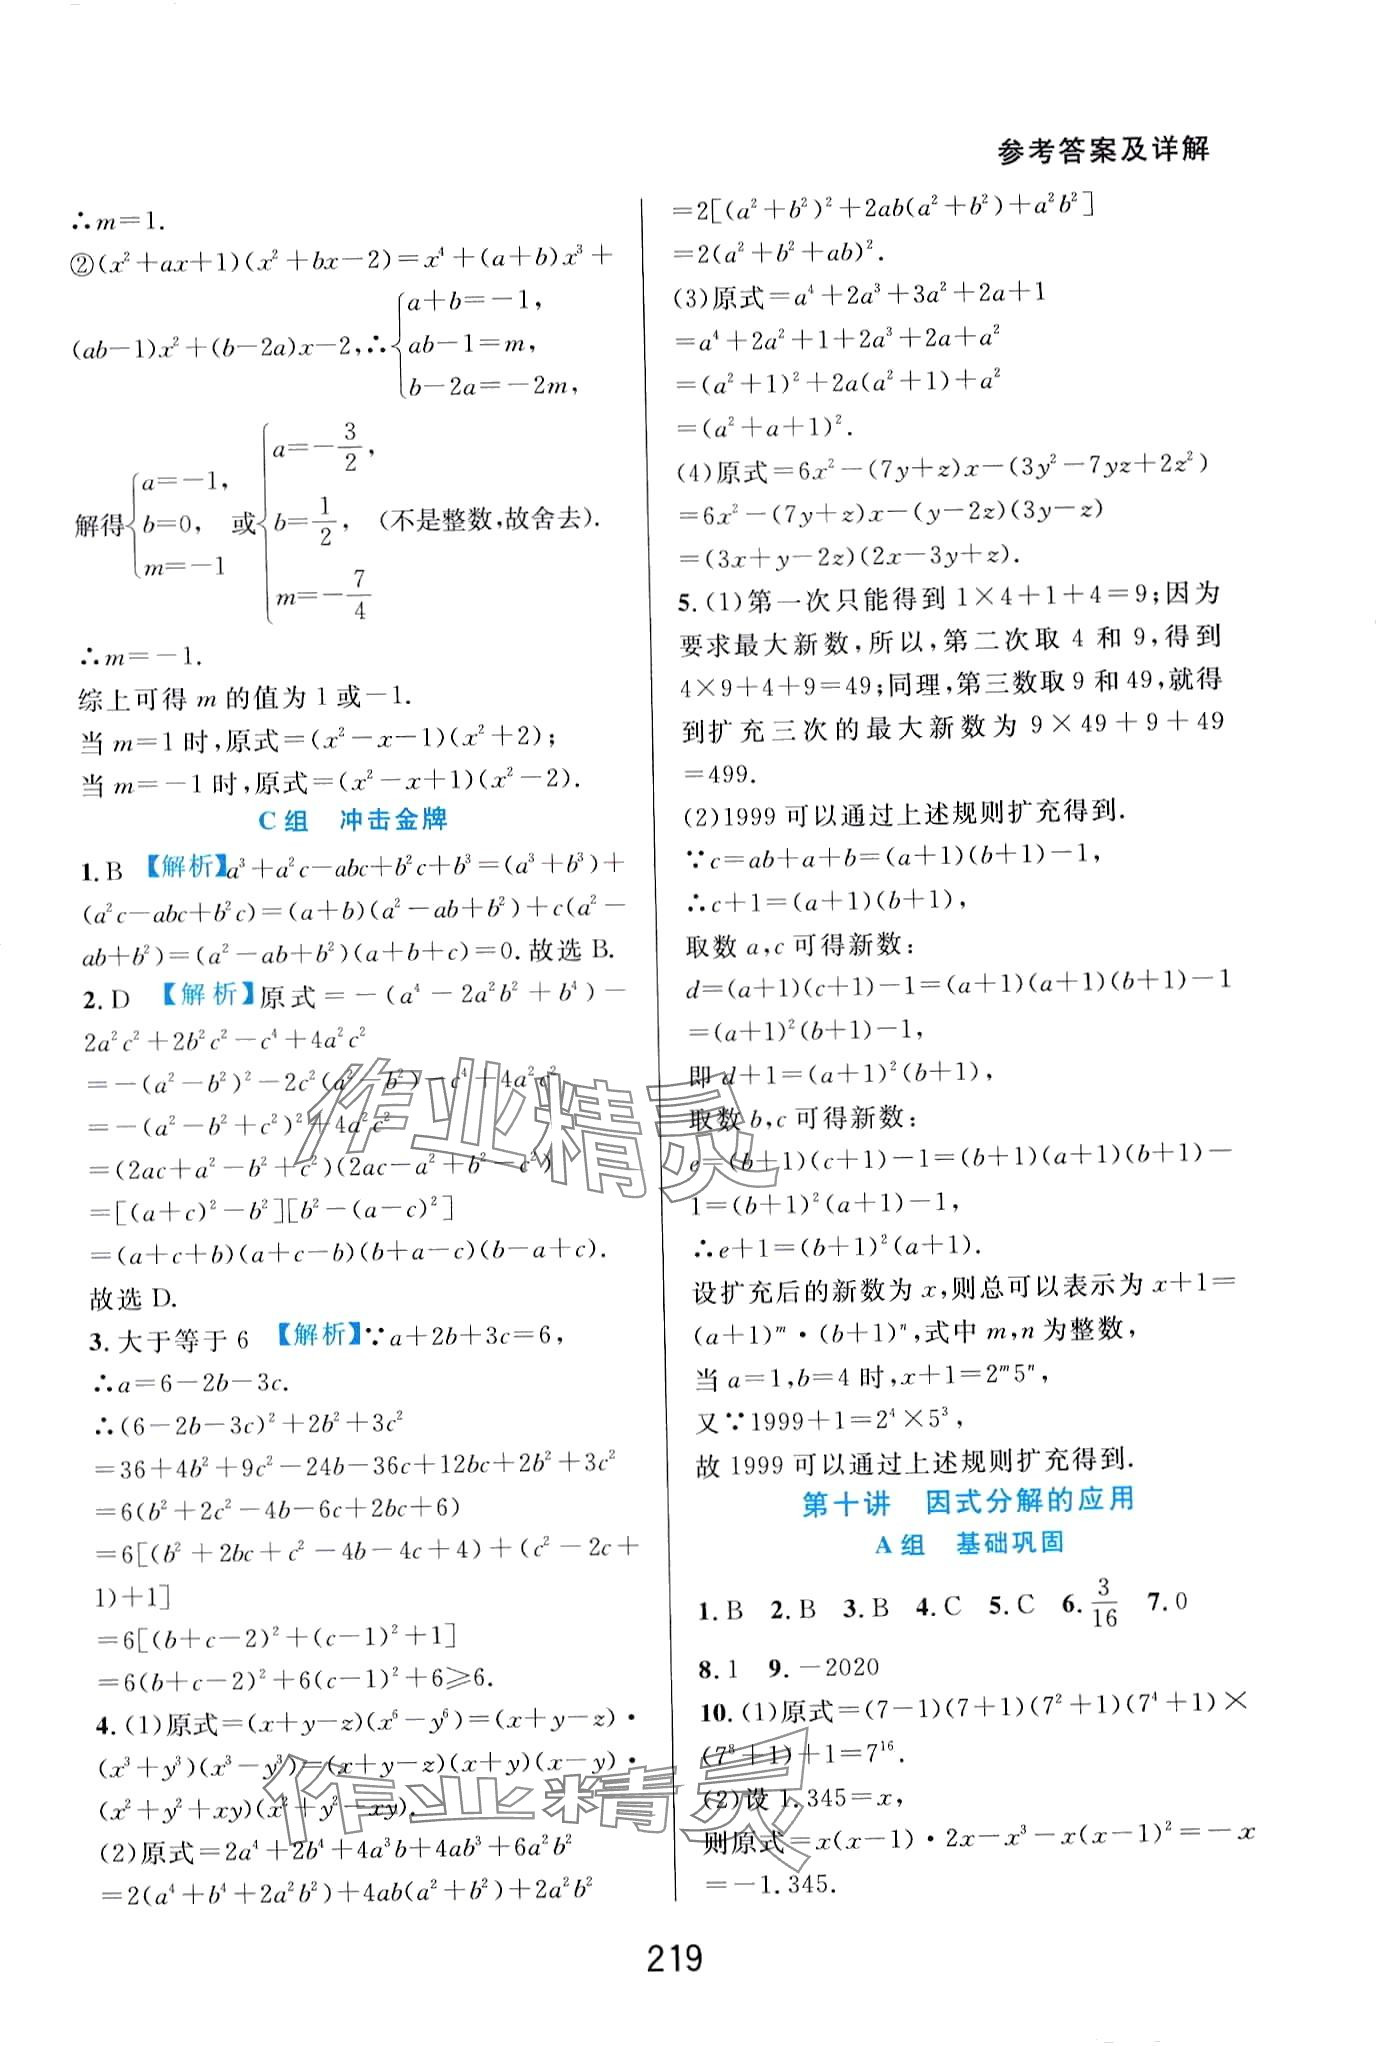 参考答案及详解
∴m=1.
②(x²+ax+1)(x²+bx-2)=x⁴+(a+b)x³+
(ab-1)x²+(b-2a)x-2,∴{a+b=-1, ab-1=m, b-2a=-2m,
解得{a=-1, b=0, m=-1 或{a=-3/2, b=1/2, m=-7/4 (不是整数,故舍去).
∴m=-1.
综上可得 m 的值为 1 或-1.
当 m=1 时,原式=(x²-x-1)(x²+2);
当 m=-1 时,原式=(x²-x+1)(x²-2).
C组 冲击金牌
1.B 【解析】a³+a²c-abc+b²c+b³=(a³+b³)+
(a²c-abc+b²c)=(a+b)(a²-ab+b²)+c(a²-
ab+b²)=(a²-ab+b²)(a+b+c)=0.故选 B.
2.D 【解析】原式=-(a⁴-2a²b²+b⁴)-
2a²c²+2b²c²-c⁴+4a²c²
=-(a²-b²)²-2c²(a²-b²)-c⁴+4a²c²
=-(a²-b²+c²)²+4a²c²
=(2ac+a²-b²+c²)(2ac-a²+b²-c²)
=[(a+c)²-b²][b²-(a-c)²]
=(a+c+b)(a+c-b)(b+a-c)(b-a+c).
故选 D.
3.大于等于 6 【解析】∵a+2b+3c=6,
∴a=6-2b-3c.
∴(6-2b-3c)²+2b²+3c²
=36+4b²+9c²-24b-36c+12bc+2b²+3c²
=6(b²+2c²-4b-6c+2bc+6)
=6[(b²+2bc+c²-4b-4c+4)+(c²-2c+
1)+1]
=6[(b+c-2)²+(c-1)²+1]
=6(b+c-2)²+6(c-1)²+6⩾6.
4.(1)原式=(x+y-z)(x⁶-y⁶)=(x+y-z)·
(x³+y³)(x³-y³)=(x+y-z)(x+y)(x-y)·
(x²+y²+xy)(x²+y²-xy).
(2)原式=2a⁴+2b⁴+4a³b+4ab³+6a²b²
=2(a⁴+b⁴+2a²b²)+4ab(a²+b²)+2a²b²
=2[(a²+b²)²+2ab(a²+b²)+a²b²]
=2(a²+b²+ab)².
(3)原式=a⁴+2a³+3a²+2a+1
=a⁴+2a²+1+2a³+2a+a²
=(a²+1)²+2a(a²+1)+a²
=(a²+a+1)².
(4)原式=6x²-(7y+z)x-(3y²-7yz+2z²)
=6x²-(7y+z)x-(y-2z)(3y-z)
=(3x+y-2z)(2x-3y+z).
5.(1)第一次只能得到 1×4+1+4=9;因为
要求最大新数,所以,第二次取 4 和 9,得到
4×9+4+9=49;同理,第三数取 9 和 49,就得
到扩充三次的最大新数为 9×49+9+49
=499.
(2)1999 可以通过上述规则扩充得到.
∵c=ab+a+b=(a+1)(b+1)-1,
∴c+1=(a+1)(b+1),
取数 a,c 可得新数:
d=(a+1)(c+1)-1=(a+1)(a+1)(b+1)-1
=(a+1)²(b+1)-1,
即 d+1=(a+1)²(b+1),
取数 b,c 可得新数:
e=(b+1)(c+1)-1=(b+1)(a+1)(b+1)-
1=(b+1)²(a+1)-1,
∴e+1=(b+1)²(a+1).
设扩充后的新数为 x,则总可以表示为 x+1=
(a+1)ᵐ·(b+1)ⁿ,式中 m,n 为整数,
当 a=1,b=4 时,x+1=2ᵐ5ⁿ,
又∵1999+1=2⁴×5³,
故 1999 可以通过上述规则扩充得到.
第十讲 因式分解的应用
A组 基础巩固
1.B 2.B 3.B 4.C 5.C 6.3/16 7.0
8.1 9.-2020
10.(1)原式=(7-1)(7+1)(7²+1)(7⁴+1)×
(7⁸+1)+1=7¹⁶.
(2)设 1.345=x,
则原式=x(x-1)·2x-x³-x(x-1)²=-x
=-1.345.
作业精灵
作业精灵
219